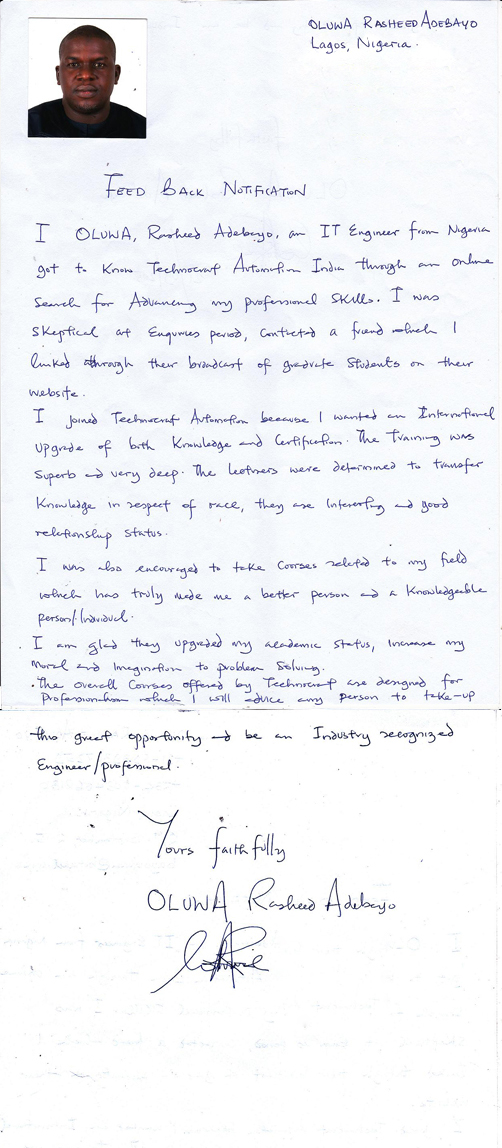 OLUWA RASHEED ADEBAYO
Lagos, Nigeria.
FEED BACK NOTIFICATION
I OLUWA, Rasheed Adebayo, an IT Engineer from Nigeria
got to know Technocraf Automation India through an online
search for Advancing my professional skills. I was
skeptical at Enquiries period, contacted a friend which I
linked through their broadcast of graduate students on their
website.
I joined Technocraf Automation because I wanted an International
upgrade of both Knowledge and Certification. The Training was
superb and very deep. The lecturers were determined to transfer
Knowledge in respect of race, they are Interesting and good
relationship status.
I was also encouraged to take Courses related to my field
which has truly made me a better person and a Knowledgeable
person/Individual.
I am glad they upgraded my academic status, increase my
Moral and Imagination to problem solving.
The overall Courses offered by Technocraf are designed for
which I will advice any person to take-up
this great opportunity and be an Industry recognized
Engineer/professional.
Yours faithfully
OLUWA Rasheed Adebayo